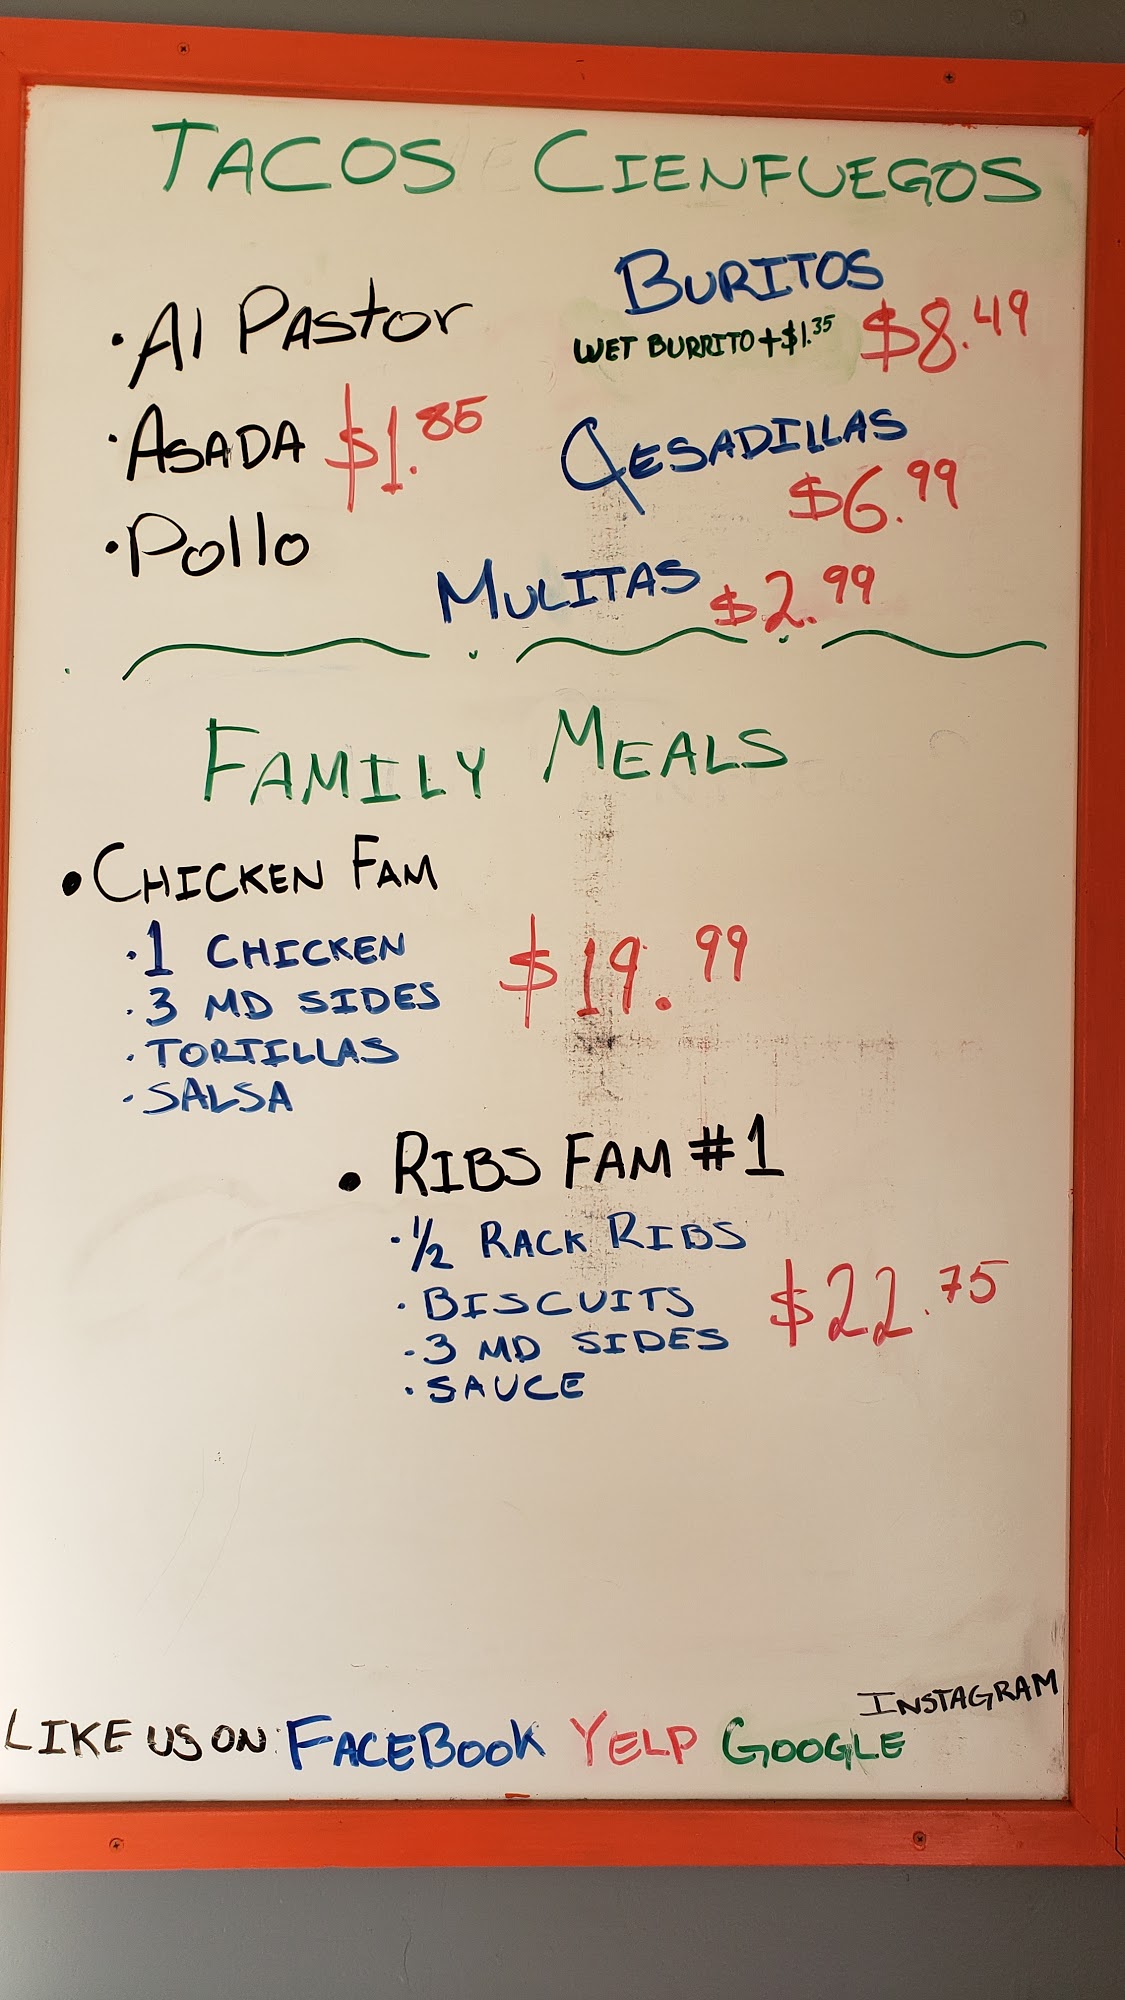 TACOS CIENFUEGOS
• Al Pastor
• ASADA $1.85
• Pollo
BURITOS
WET BURRITO +$1.35 $8.49
QESADILLAS
$6.99
MULITAS $2.99
FAMILY MEALS
• CHICKEN FAM
• 1 CHICKEN
• 3 MD SIDES
• TORTILLAS
• SALSA
$19.99
• RIBS FAM #1
• 1/2 RACK RIBS
• BISCUITS
• 3 MD SIDES
• SAUCE
$22.75
LIKE US ON: FACEBOOK YELP GOOGLE
INSTAGRAM